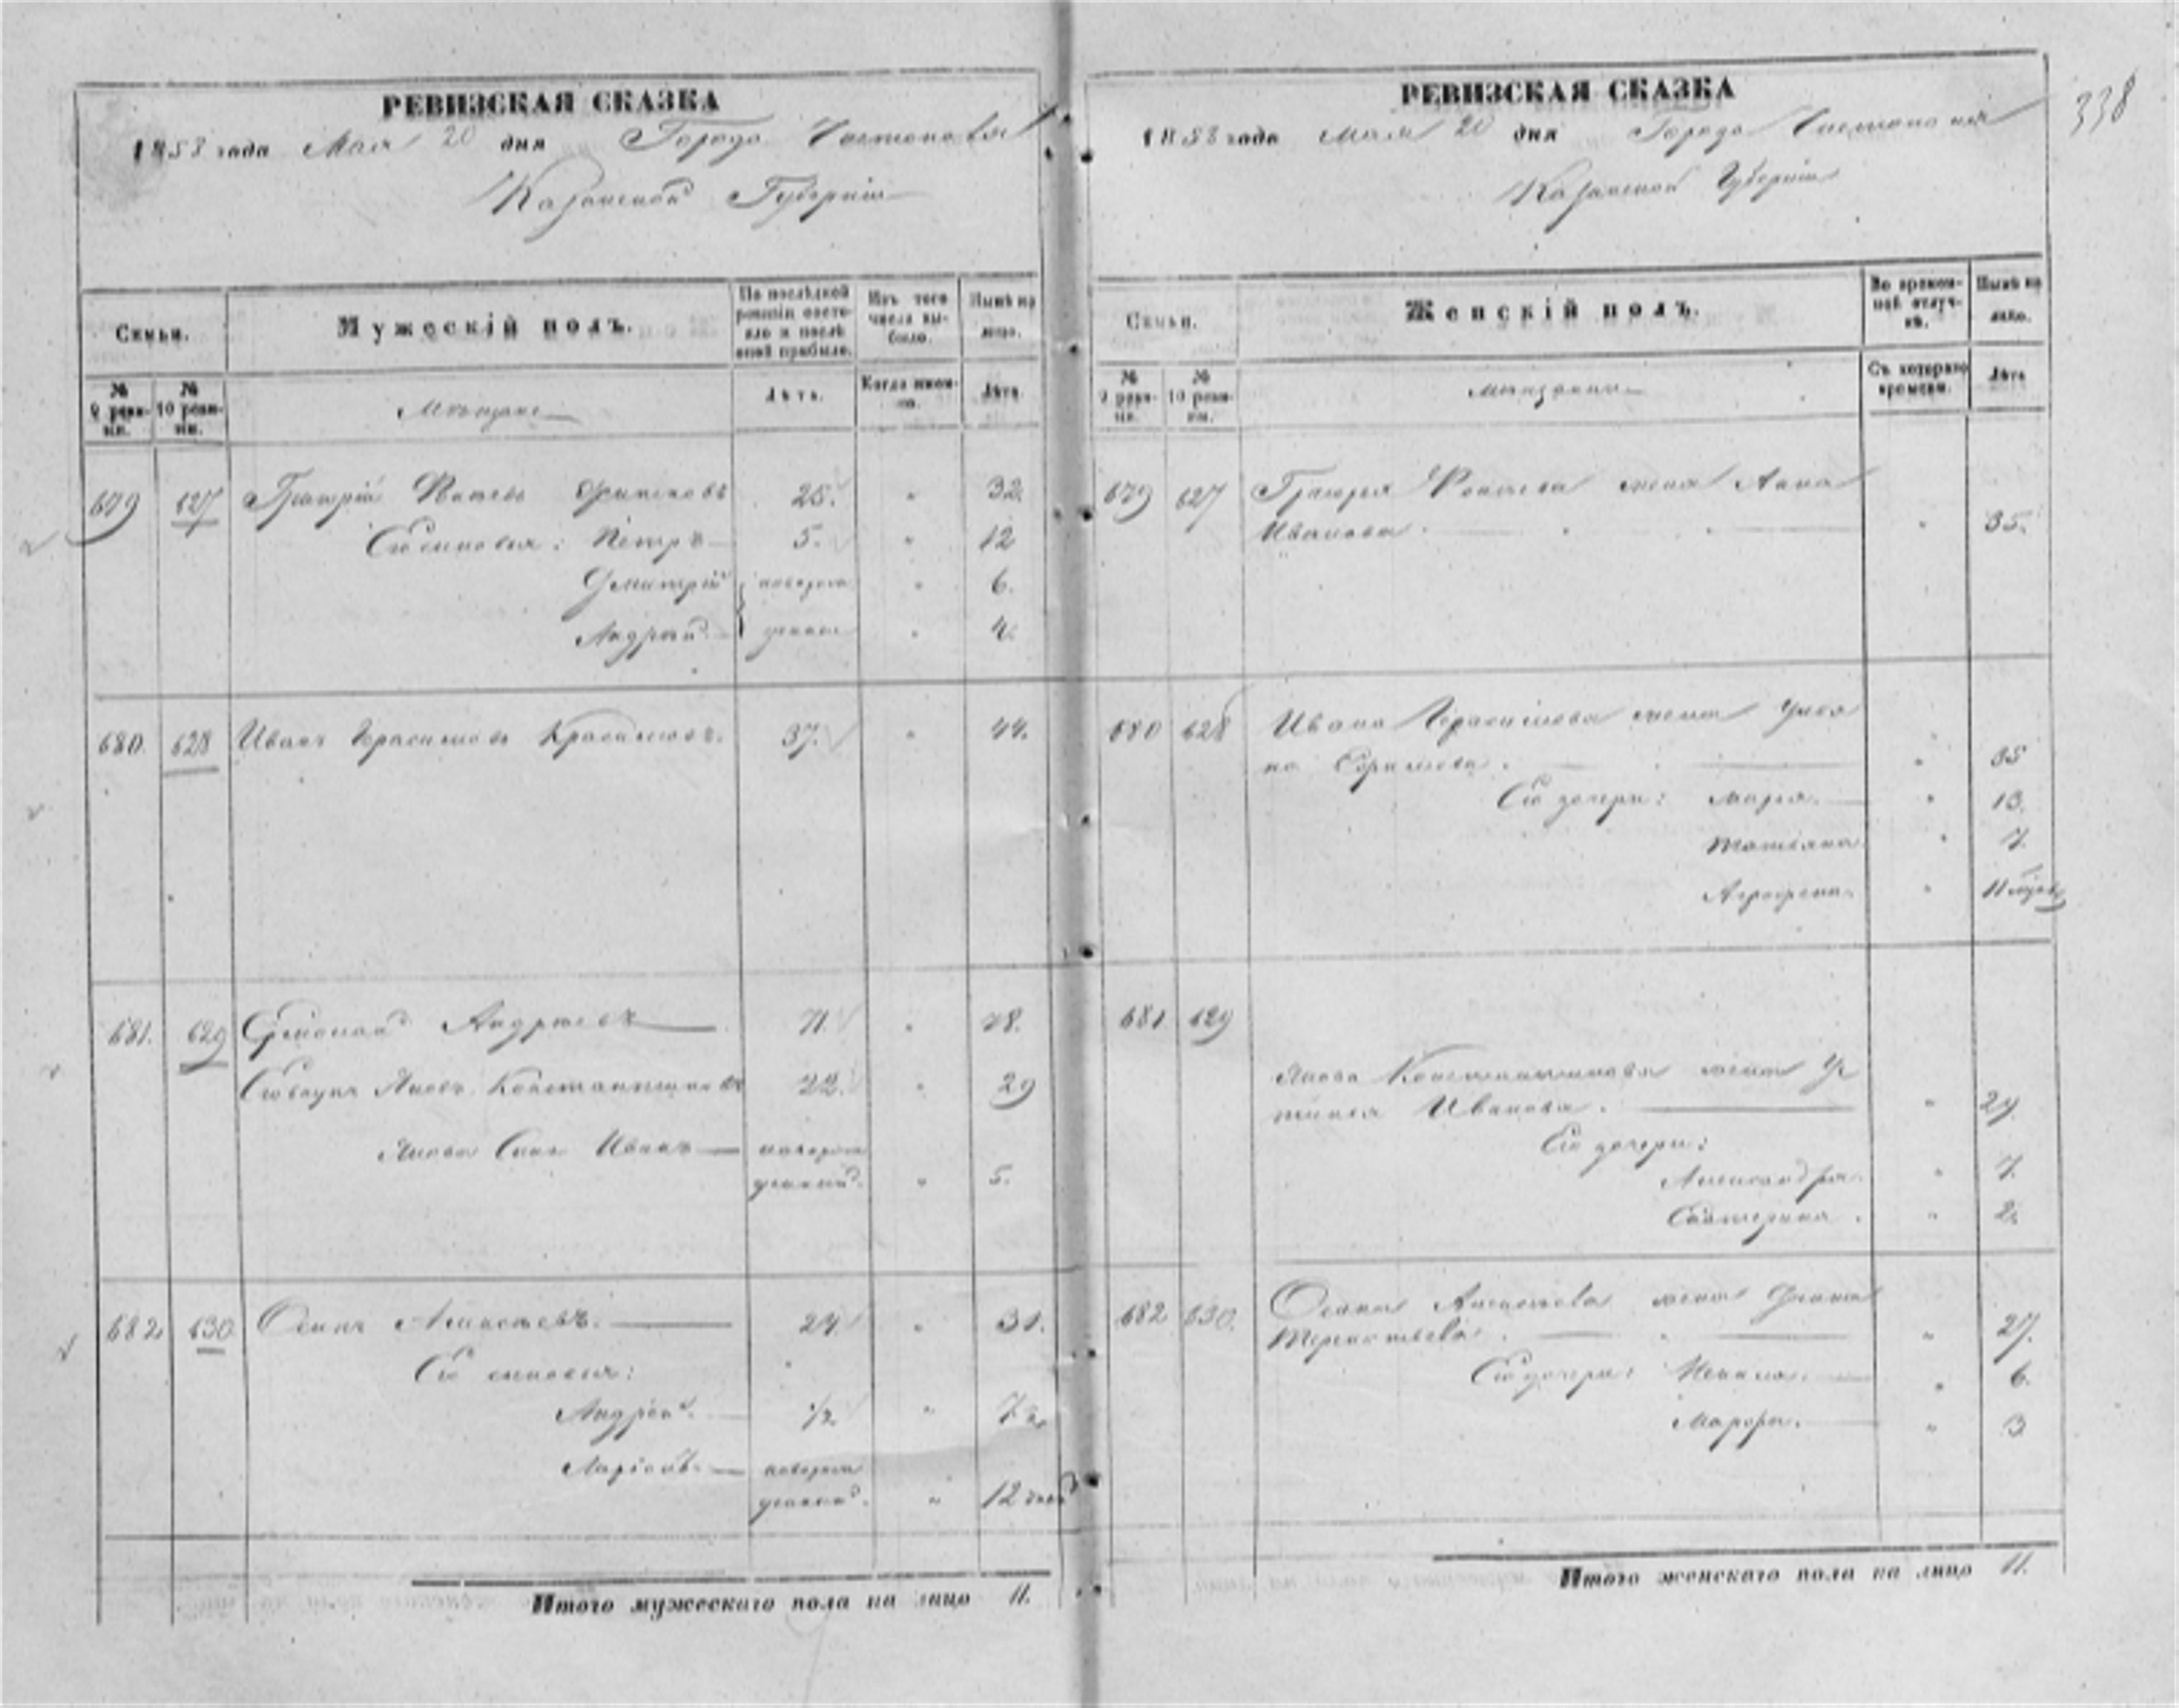 РЕВИЗСКАЯ СКАЗКА
1858 года Мая 20 дня Города Чистополя
Казанской Губернии
Семьи.
Мужескій полъ.
По послѣдней ревизіи состояло и послѣ оной прибыло.
Изъ того числа выбыло.
Нынѣ на лицо.
№ 9 ревизіи.
№ 10 ревизіи.
Мѣщане
Лѣтъ.
Когда именно.
Лѣта.
679 627 Григорій 25. " 32.
Его сыновья: Петръ 5. " 12
Дмитрій новорож " 6.
Андрей денные " 4.
680. 628 Иванъ Герасимовъ 37. " 44.
681. 629 Андреевъ 71. " 78.
Его внукъ Яковъ Константиновъ 22. " 29
Якова Сынъ Иванъ новорож
денный. " 5.
682 630 Осипъ Алексѣевъ. 24 " 31.
Его сыновья:
Андрей. 1/2 "
Ларіонъ новорож
денный. " 12 дней
Итого мужескаго пола на лицо 11.
РЕВИЗСКАЯ СКАЗКА
338
1858 года мая 20 дня Города Чистополя
Казанской Губерніи
Семьи.
Женскій полъ.
Во временной отлучкѣ.
Нынѣ на лицо.
№ 9 ревизіи.
№ 10 ревизіи.
мѣщанки
Съ котораго времени.
Лѣта
679 627 Григорья жена Анна
Иванова. " 35.
680 628 Ивана Герасимова жена Улья
на " 35
Его дочери: Марья. " 13.
Татьяна " 7.
Агрофена. " 11 мѣсяц
681 629
Якова Константинова жена Ус
тинья Иванова. " 29.
Его дочери:
Александра. " 7.
Екатерина. " 2.
682 630. Осипа Алексѣева жена
" 27.
Его дочери: " 6.
Марфа. " 3
Итого женскаго пола на лицо 11.